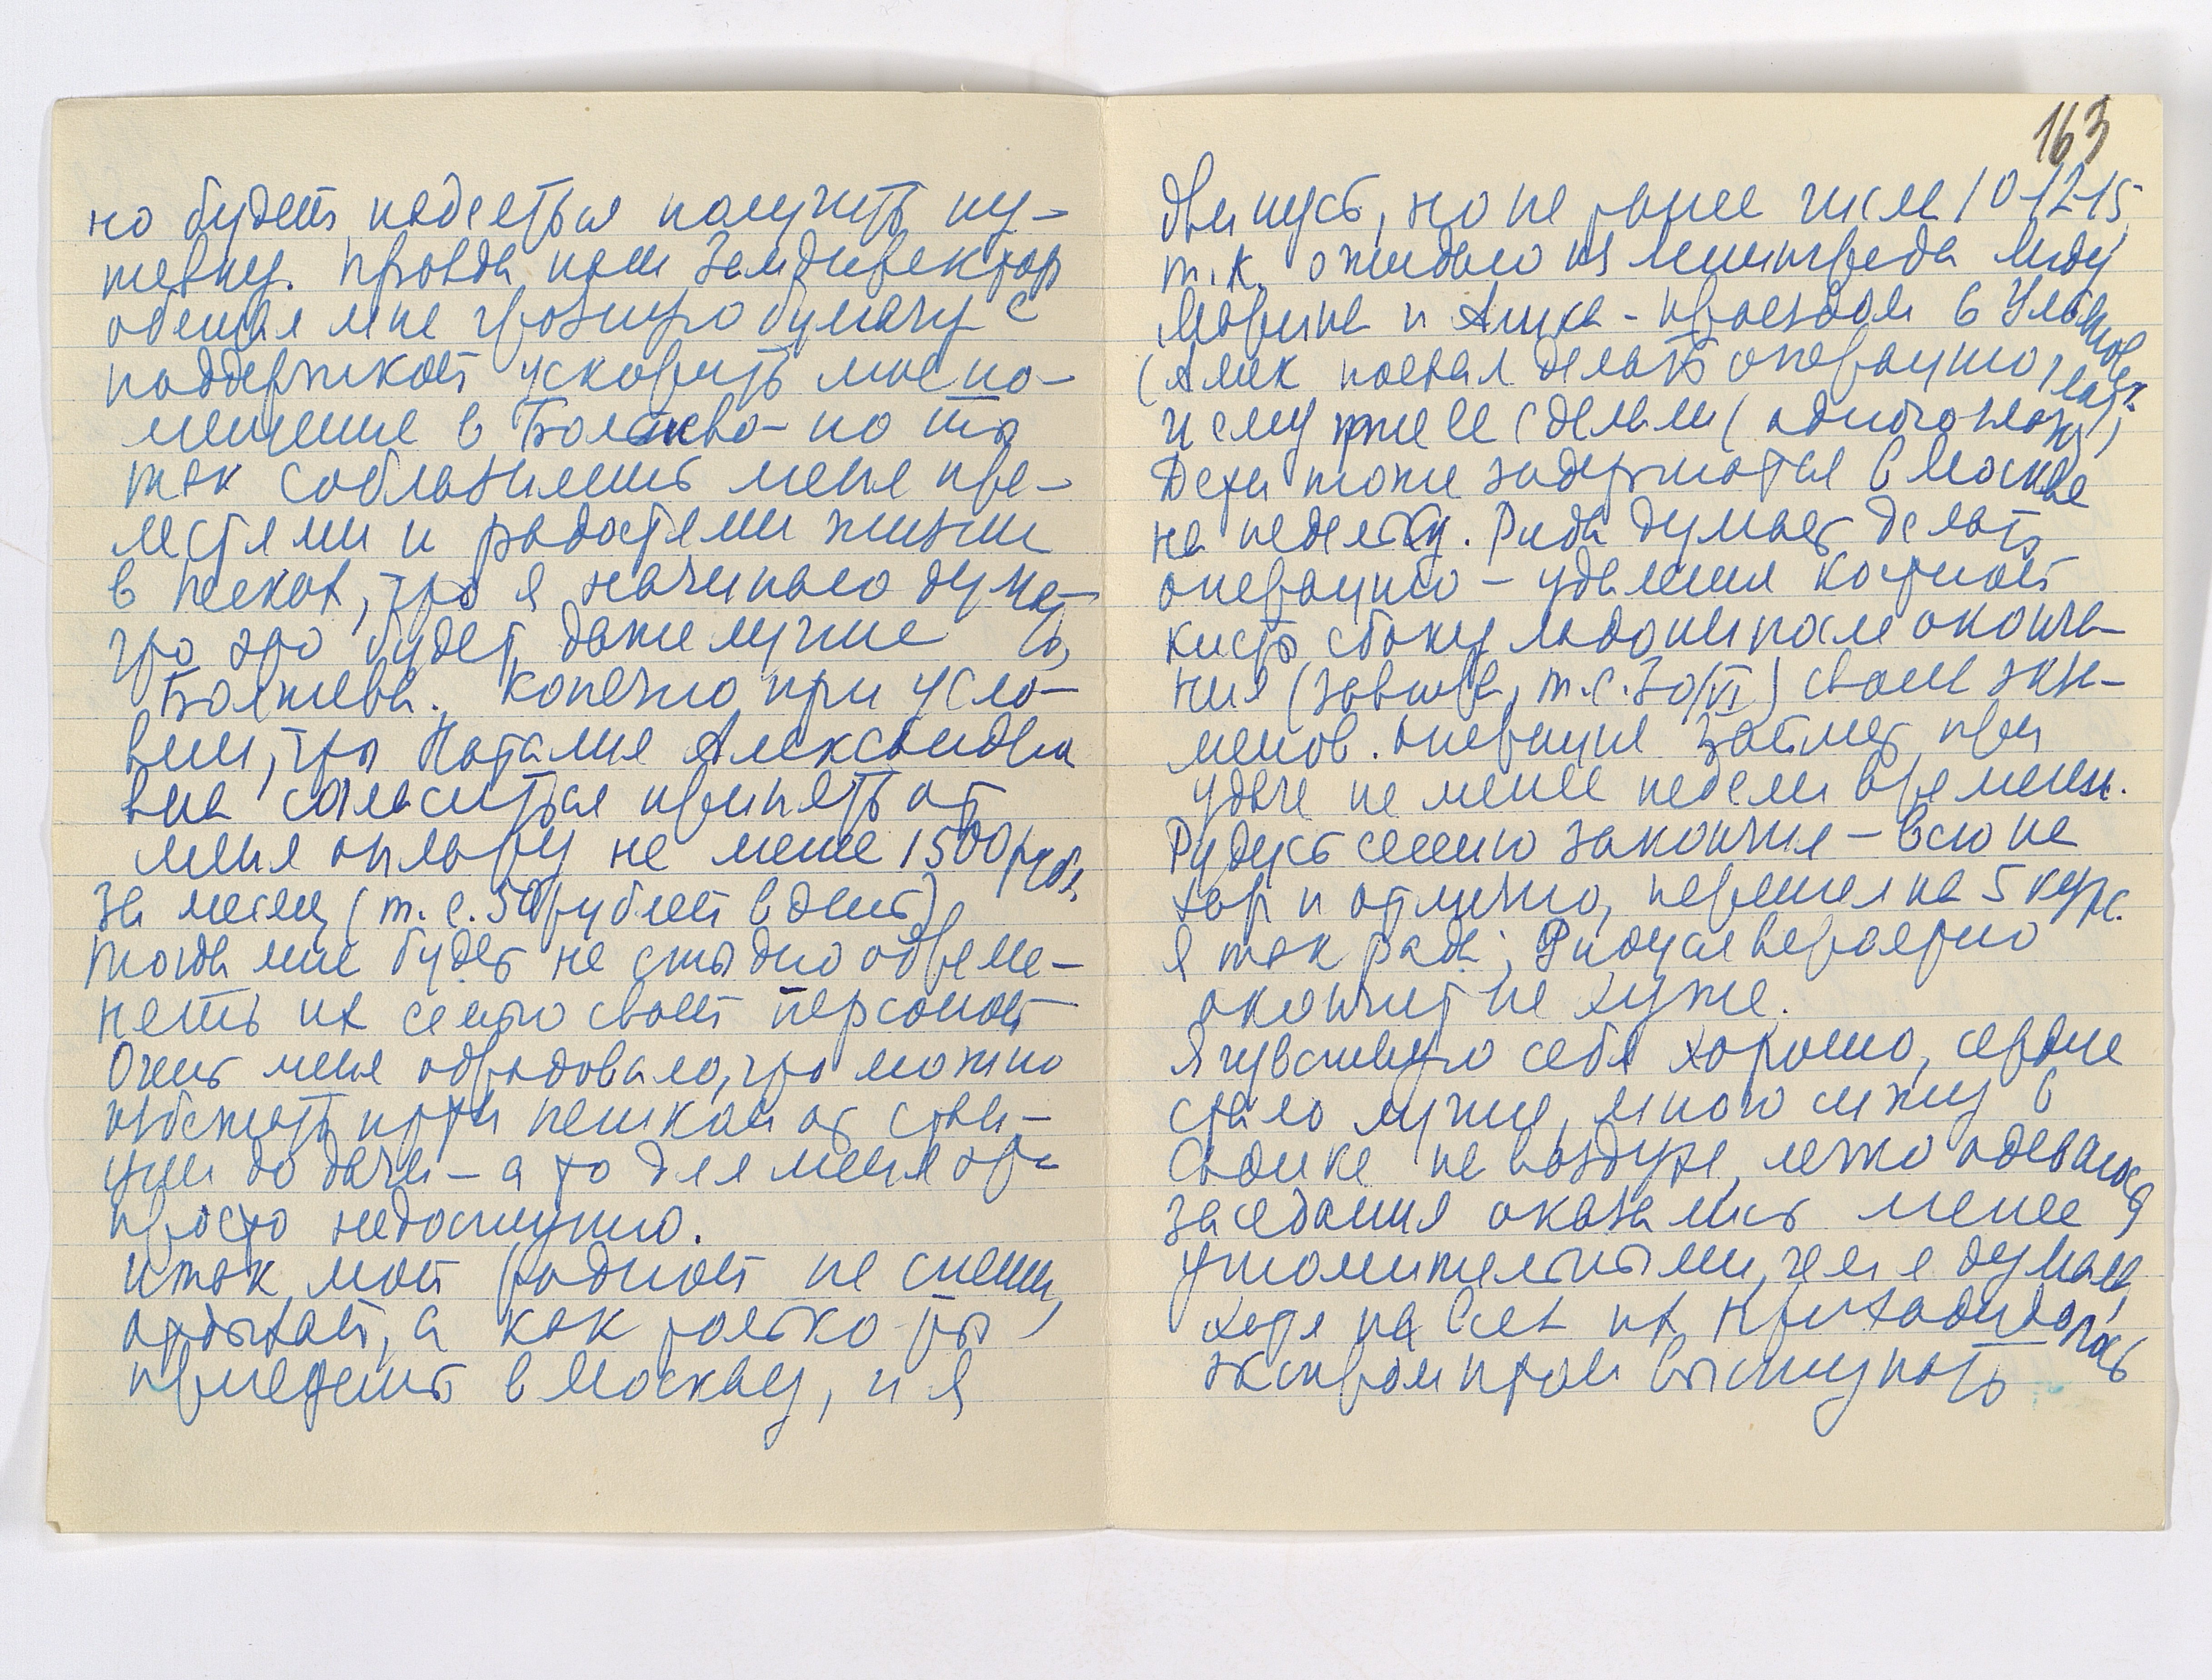 но будет надеяться получить пу-
тевку. Правда наш Замдиректор
обещал мне грозную бумагу с
поддержкой ускорить мое по-
мещение в Болшево – но ты
так соблазняешь меня пре-
лестями и радостями жизни
в Песках, что я начинаю думать,
что это будет даже лучше
Болшева. Конечно при усло-
вии, что Наталия Александров
вна согласиться принять от
меня оплату не менее 1500 рубл.
за месяц (т.е. 50 рублей в день)
тогда мне будет не стыдно обреме-
нять их семью своей персоной
Очень меня обрадовало, что можно
избежать идти пешком от стан-
ции до дачи – а то для меня это
просто недоступно.
Итак, мой родной не спеши,
отдыхай, а как только ты
приедешь в Москву, и я
163
двинусь, но не ранее числа 10-12-15,
т.к. ожидаю из Ленинграда Лиду
Марина и Алика – проездом в Ульяновск
(Алик поехал делать операцию глаз.
и ему уже ее сделали (одного глаза),
Дети тоже задержатся в Москве
на неделю. Рида думает делать
операцию – удаления костной
кисты сбоку ладони после оконча-
ния (завтра, т.е. 30/VI) своих экза-
менов. Операция займет при
удаче не менее недели времени.
Рудусь сессию закончил – всю на
хор и отлично, перешел на 5 курс.
Я так рада; Ридуся вероятно
окончит не хуже.
Я чувствую себя хорошо, сердце
стало лучше, много сижу в
садике на воздухе, легко одеваюсь
заседания оказались менее
утомительными, чем я думала,
хотя на всех их приходилось
экспромптом выступать